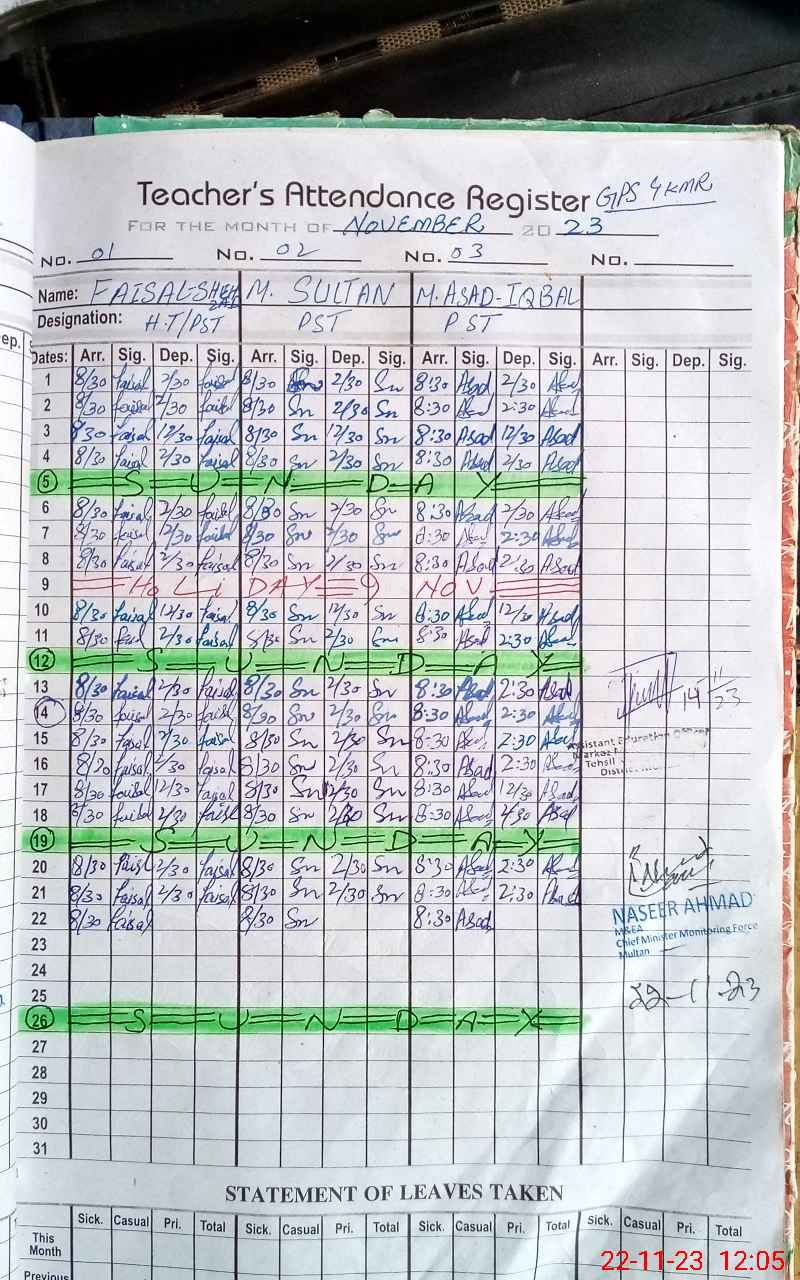 Teacher's Attendance Register GPS 4 KMR
FOR THE MONTH OF NOVEMBER 20 23
No. 01 No. 02 No. 03 No.
Name: FAISAL-SHEHZAD M. SULTAN M. ASAD-IQBAL
Designation: H.T/PST PST PST
ep. Dates: Arr. Sig. Dep. Sig. Arr. Sig. Dep. Sig. Arr. Sig. Dep. Sig. Arr. Sig. Dep. Sig.
1 8/30 faisal 2/30 faisal 8/30 Sn 2/30 Sn 8:30 Asad 2/30 Asad
2 8/30 faisal 2/30 faisal 8/30 Sn 2/30 Sn 8:30 Asad 2:30 Asad
3 8/30 faisal 12/30 faisal 8/30 Sn 12/30 Sn 8:30 Asad 12/30 Asad
4 8/30 faisal 2/30 faisal 8/30 Sn 2/30 Sn 8:30 Asad 2/30 Asad
5 SUNDAY
6 8/30 faisal 2/30 faisal 8/30 Sn 2/30 Sn 8:30 Asad 2/30 Asad
7 8/30 faisal 2/30 faisal 8/30 Sn 2/30 Sn 8:30 Asad 2:30 Asad
8 8/30 faisal 2/30 faisal 8/30 Sn 2/30 Sn 8:30 Asad 2:30 Asad
9 HoLiDAY=9 NOV.
10 8/30 faisal 12/30 faisal 8/30 Sn 12/30 Sn 8:30 Asad 12/30 Asad
11 8/30 faisal 2/30 faisal 8/30 Sn 2/30 Sn 8:30 Asad 2:30 Asad
12 SUNDAY
13 8/30 faisal 2/30 faisal 8/30 Sn 2/30 Sn 8:30 Asad 2:30 Asad
14 8/30 faisal 2/30 faisal 8/30 Sn 2/30 Sn 8:30 Asad 2:30 Asad
14/11/23
15 8/30 faisal 2/30 faisal 8/30 Sn 2/30 Sn 8:30 Asad 2:30 Asad
Assistant Education Officer
Markaz
Tehsil
16 8/30 faisal 2/30 faisal 8/30 Sn 2/30 Sn 8:30 Asad 2:30 Asad
17 8/30 faisal 12/30 faisal 8/30 Sn 12/30 Sn 8:30 Asad 12/30 Asad
18 8/30 faisal 2/30 faisal 8/30 Sn 2/30 Sn 8:30 Asad 2/30 Asad
19 SUNDAY
20 8/30 faisal 2/30 faisal 8/30 Sn 2/30 Sn 8:30 Asad 2:30 Asad
21 8/30 faisal 2/30 faisal 8/30 Sn 2/30 Sn 8:30 Asad 2:30 Asad
22 8/30 faisal 8/30 Sn 8:30 Asad
NASEER AHMAD
M&EA
Chief Minister Monitoring Force
Multan
23
24
25
22-11-23
26 SUNDAY
27
28
29
30
31
STATEMENT OF LEAVES TAKEN
Sick. Casual Pri. Total Sick. Casual Pri. Total Sick. Casual Pri. Total Sick. Casual Pri. Total
This Month
Previous
22-11-23 12:05